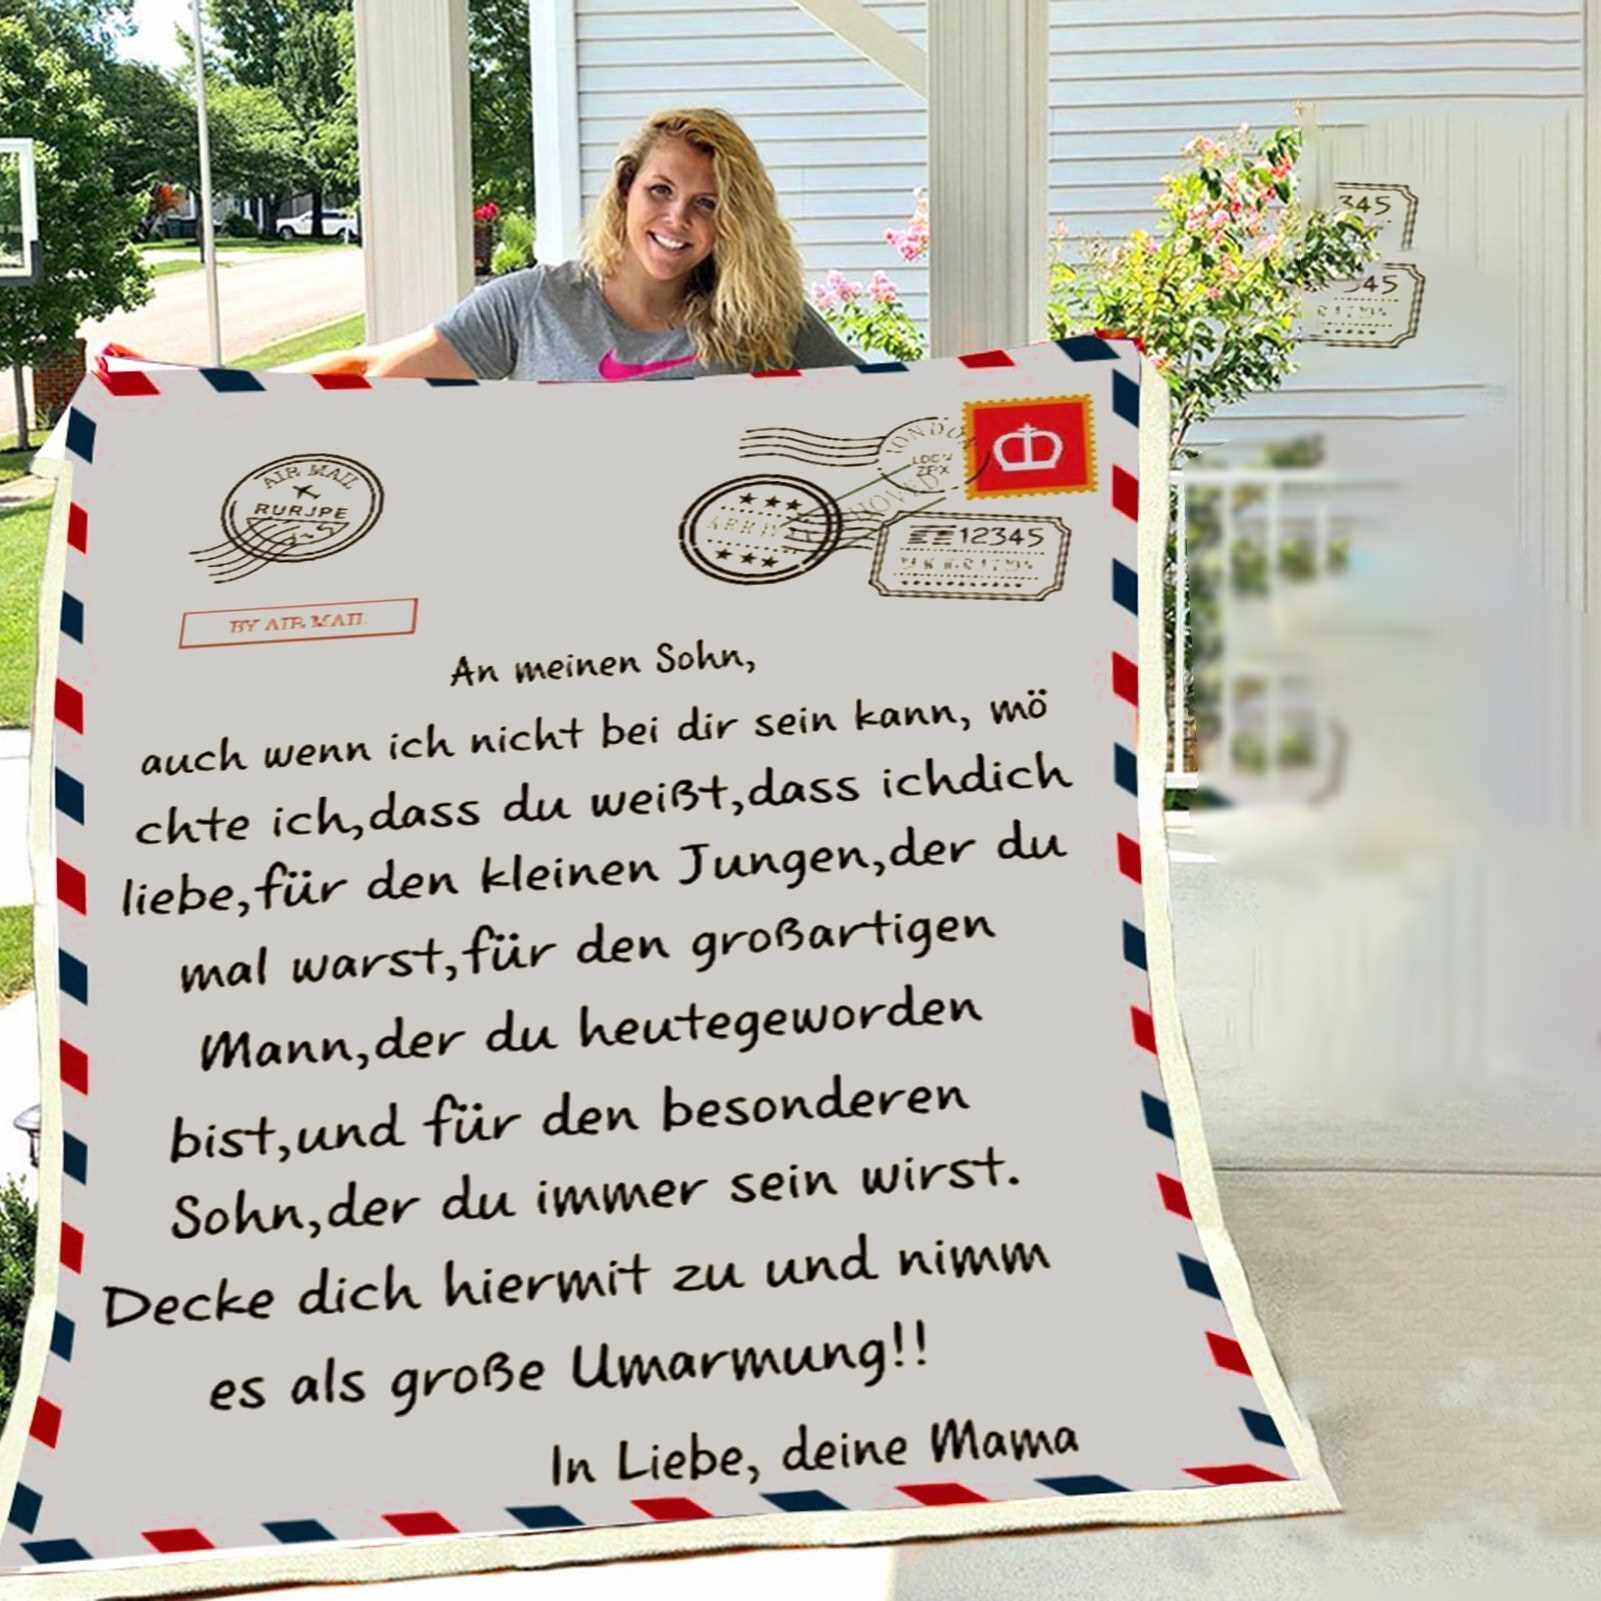 AIR MAIL
RURJPE
LONDON
12345
BY AIR MAIL
345
345
An meinen Sohn,
auch wenn ich nicht bei dir sein kann, mö
chte ich,dass du weißt,dass ichdich
liebe,für den kleinen Jungen,der du
mal warst,für den großartigen
Mann,der du heutegeworden
bist,und für den besonderen
Sohn,der du immer sein wirst.
Decke dich hiermit zu und nimm
es als große Umarmung!!
In Liebe, deine Mama